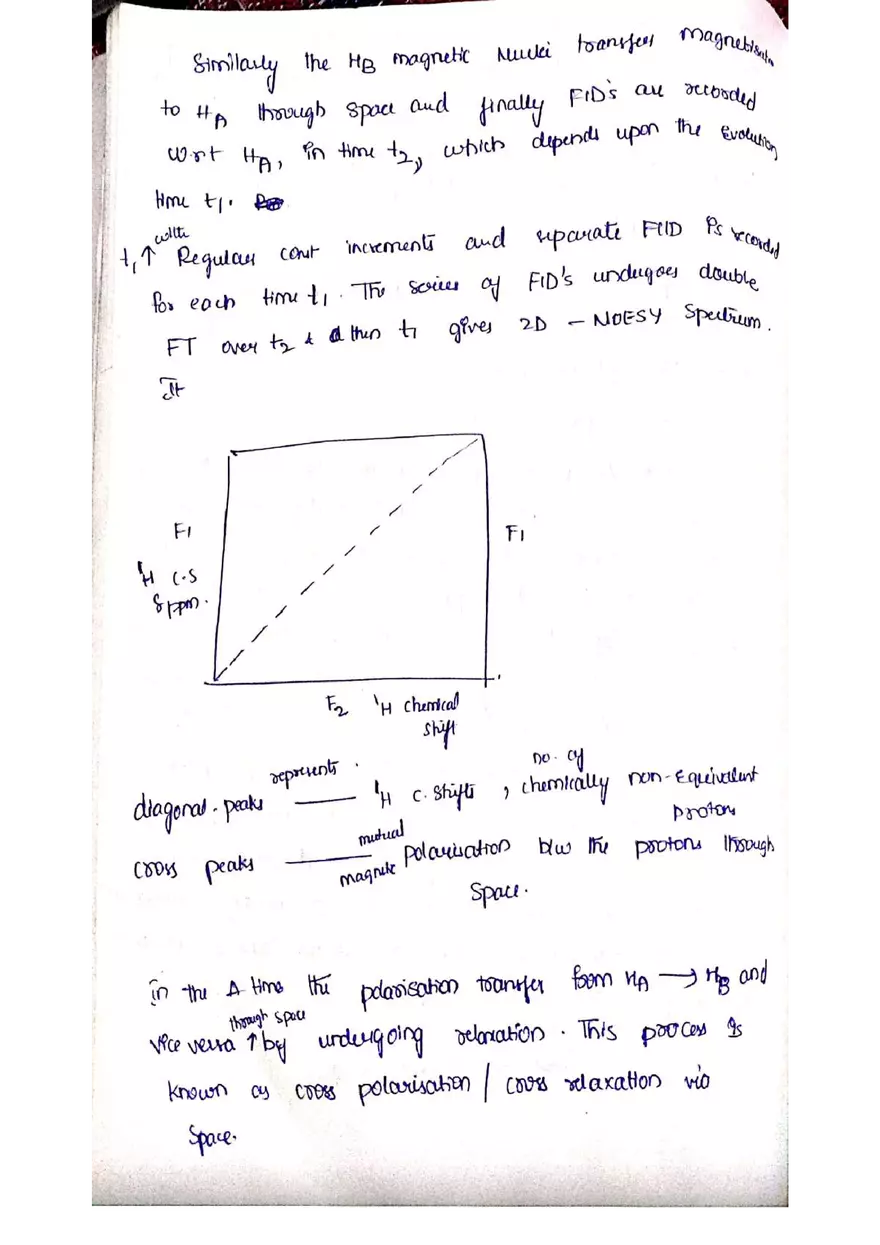 Similarly the HB magnetic Nuclei transfers magnetisation
to HA through space and finally FID's are recorded
wrt HA, in time t2, which depends upon the Evolution
time t1.
with
t1 ↑ Regular const increments and separate FID is recorded
for each time t1. The series of FID's undergoes double
FT over t2 & then t1 gives 2D - NOESY Spectrum.
It
F1
F1
1H C.S
δ ppm.
F2 1H chemical
shift
represents
no. of
diagonal peaks — 1H C. Shifts, chemically non-Equivalent
protons
mutual
cross peaks — polarisation b/w the protons through
magnetic
Space.
in the Δ time the polarisation transfer from HA → HB and
through space
vice versa ↑ by undergoing relaxation. This process is
known as cross polarisation / cross relaxation via
Space.